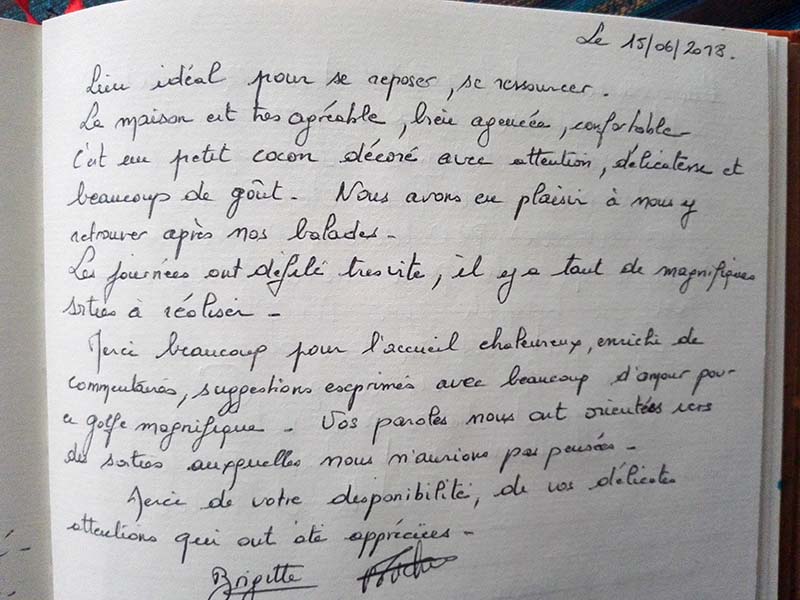 Le 15/06/2018.
Lieu idéal pour se reposer, se ressourcer.
La maison est très agréable, bien agencée, confortable.
C'est un petit cocon décoré avec attention, délicatesse et
beaucoup de goût. Nous avons eu plaisir à nous y
retrouver après nos balades.
Les journées ont défilé très vite, il y a tant de magnifiques
sorties à réaliser.
Merci beaucoup pour l'accueil chaleureux, enrichi de
commentaires, suggestions exprimés avec beaucoup d'amour pour
ce golfe magnifique. Vos paroles nous ont orientées vers
des sorties auxquelles nous n'aurions pas pensées.
Merci de votre disponibilité, de vos délicates
attentions qui ont été appréciées.
Brigitte